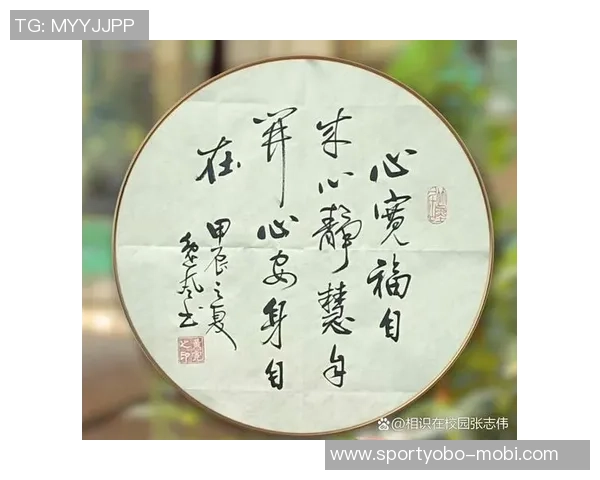 TG: MYYJJPP
心宽福自
来心静慧自
开心安身自
在
甲辰之夏
书
@相识在校园张志伟
www.sportyobo-mobi.com